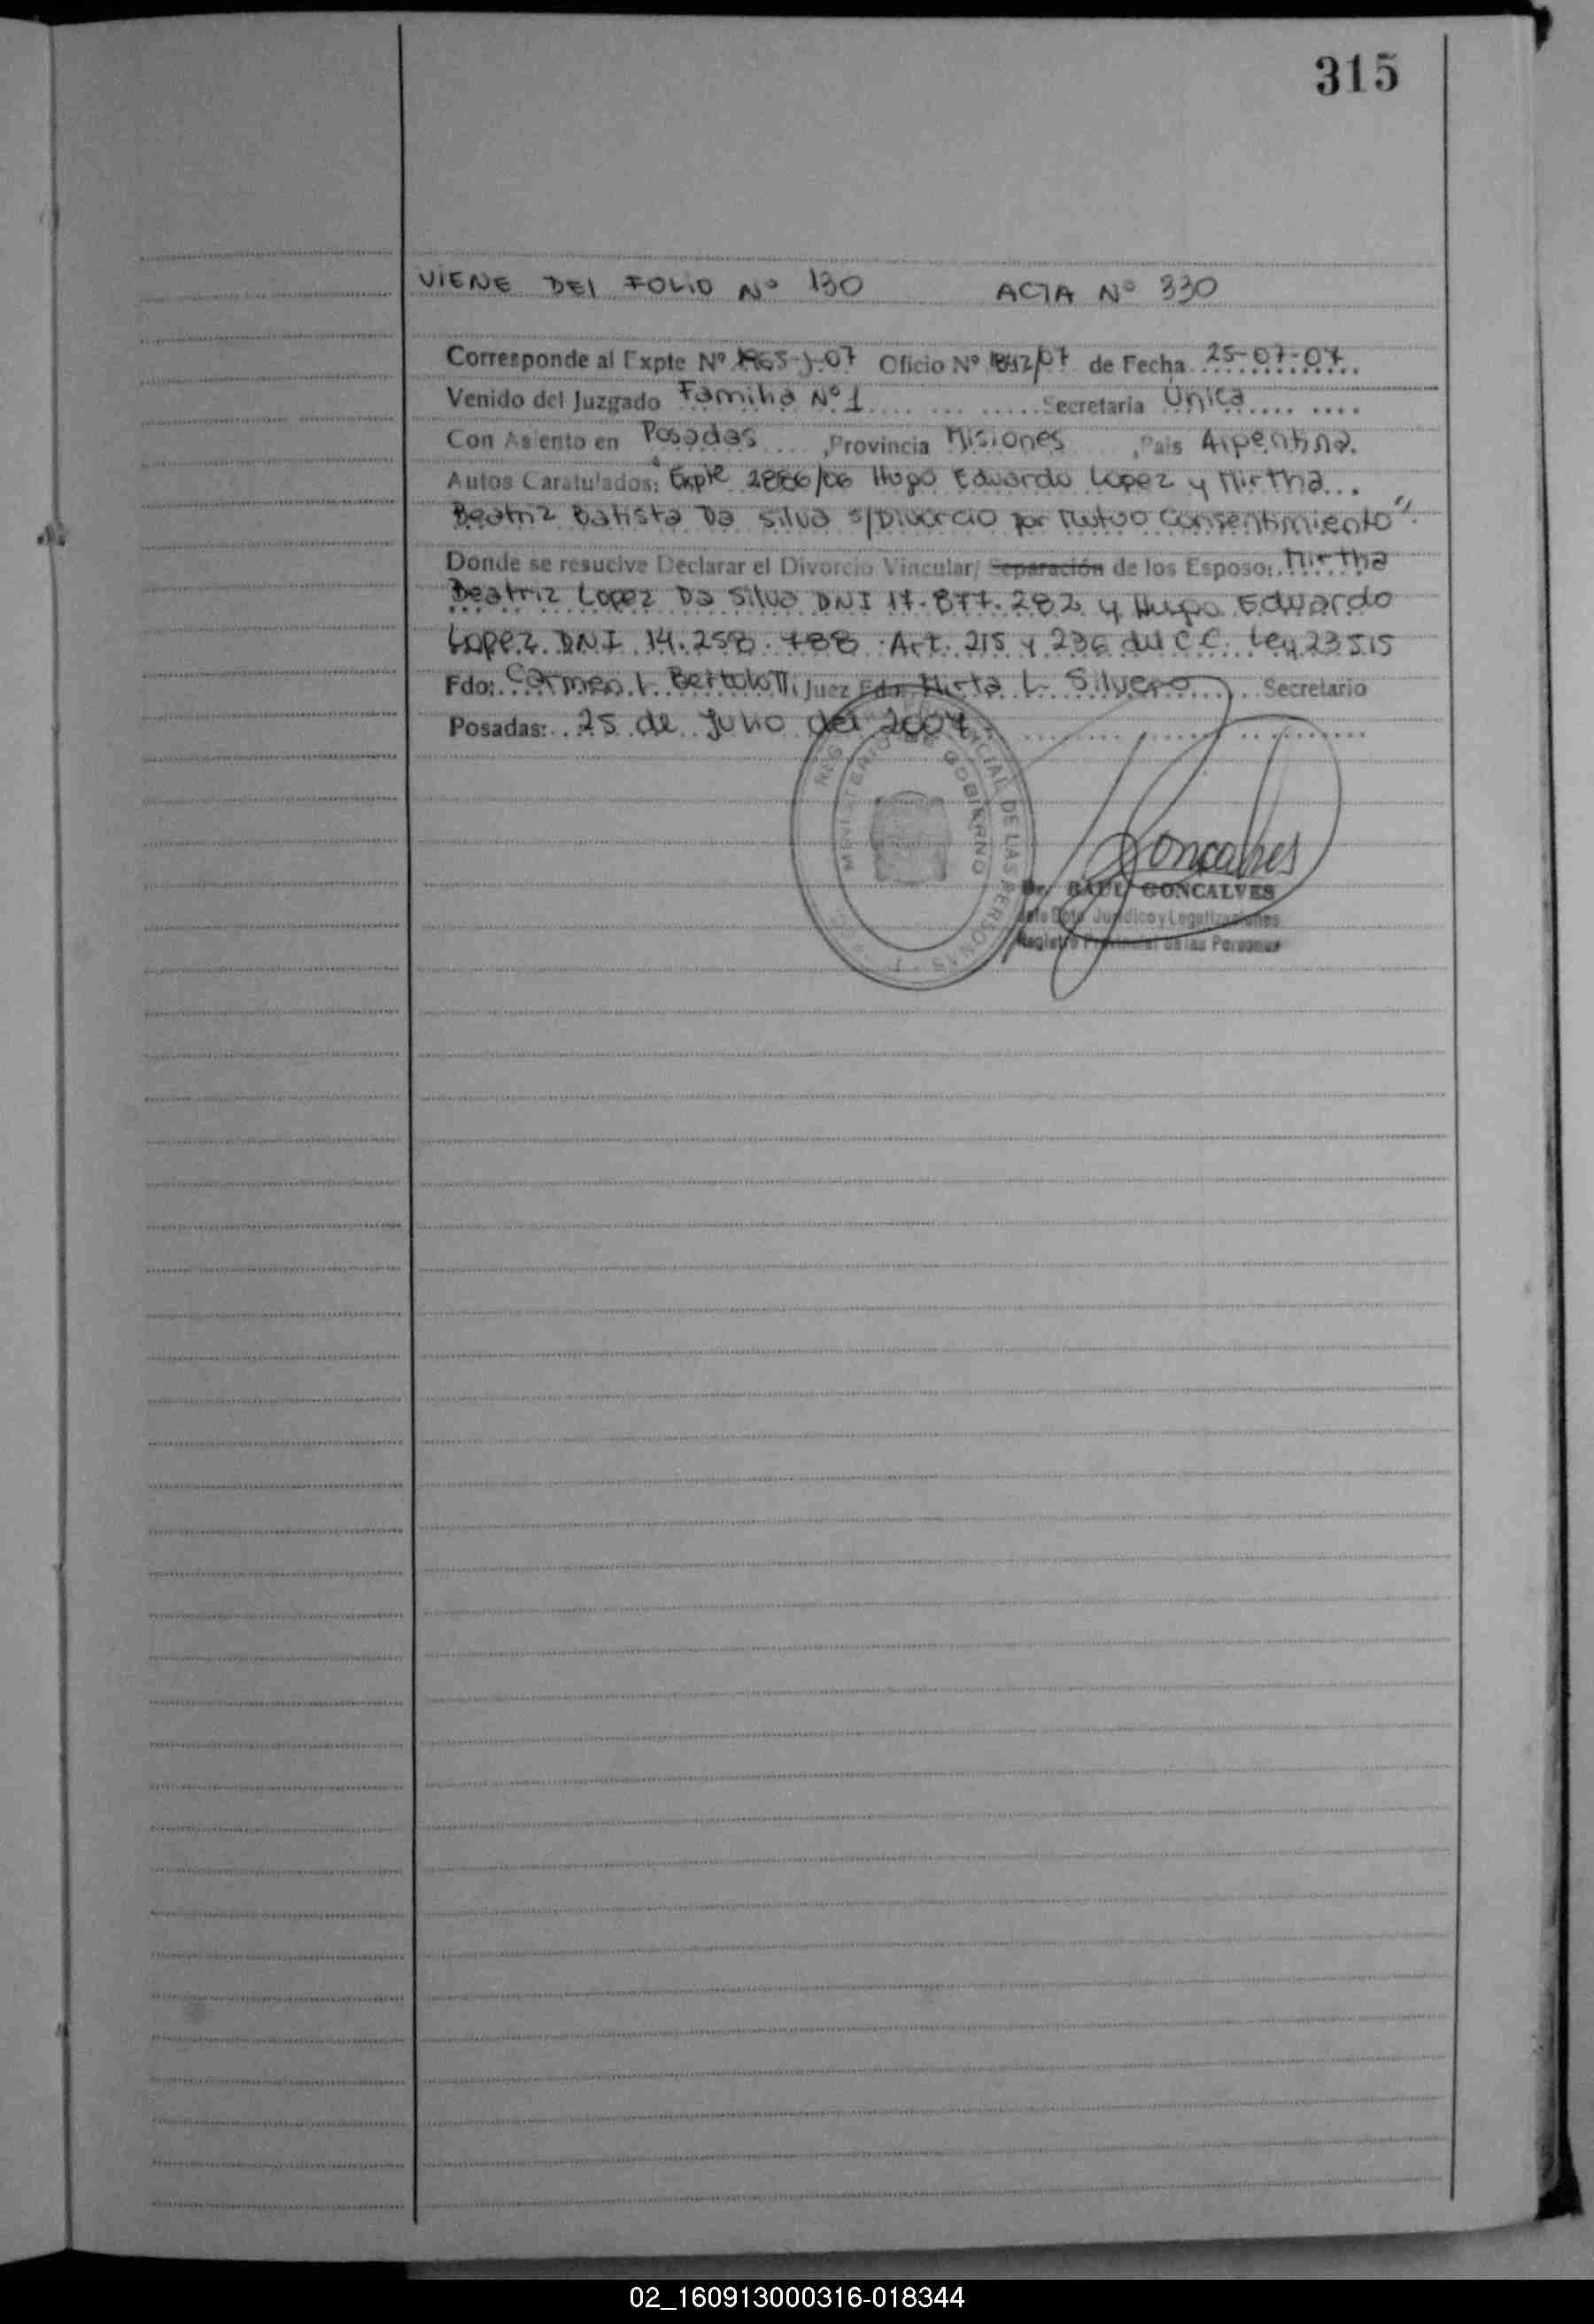 315
VIENE DEL FOLIO Nº 130 ACTA Nº 330
Corresponde al Expte Nº 1965-J-07 Oficio Nº 1842/07 de Fecha 25-07-07
Venido del Juzgado Familia Nº 1 Secretaria Unica
Con Asiento en Posadas, Provincia Misiones, Pais Argentina.
Autos Caratulados: "Expte 2886/06 Hugo Eduardo Lopez y Mirtha
Beatriz Batista Da Silva s/Divorcio por Mutuo Consentimiento".
Donde se resuelve Declarar el Divorcio Vincular/ Separación de los Esposo: Mirtha
Beatriz Lopez Da Silva DNI 17.877.282 y Hugo Eduardo
Lopez DNI 14.258.788 Art. 215 y 236 del C.C. Ley 23515
Fdo: Carmen L. Bertolotti Juez Fdo: Mirta L. Silvero Secretario
Posadas: 25 de Julio del 2007
MINISTERIO DE GOBIERNO
DE LAS PERSONAS
Goncalves
Dr. RAUL GONCALVES
Jefe Dpto Jurídico y Legalizaciones
Registro Provincial de las Personas
02_160913000316-018344